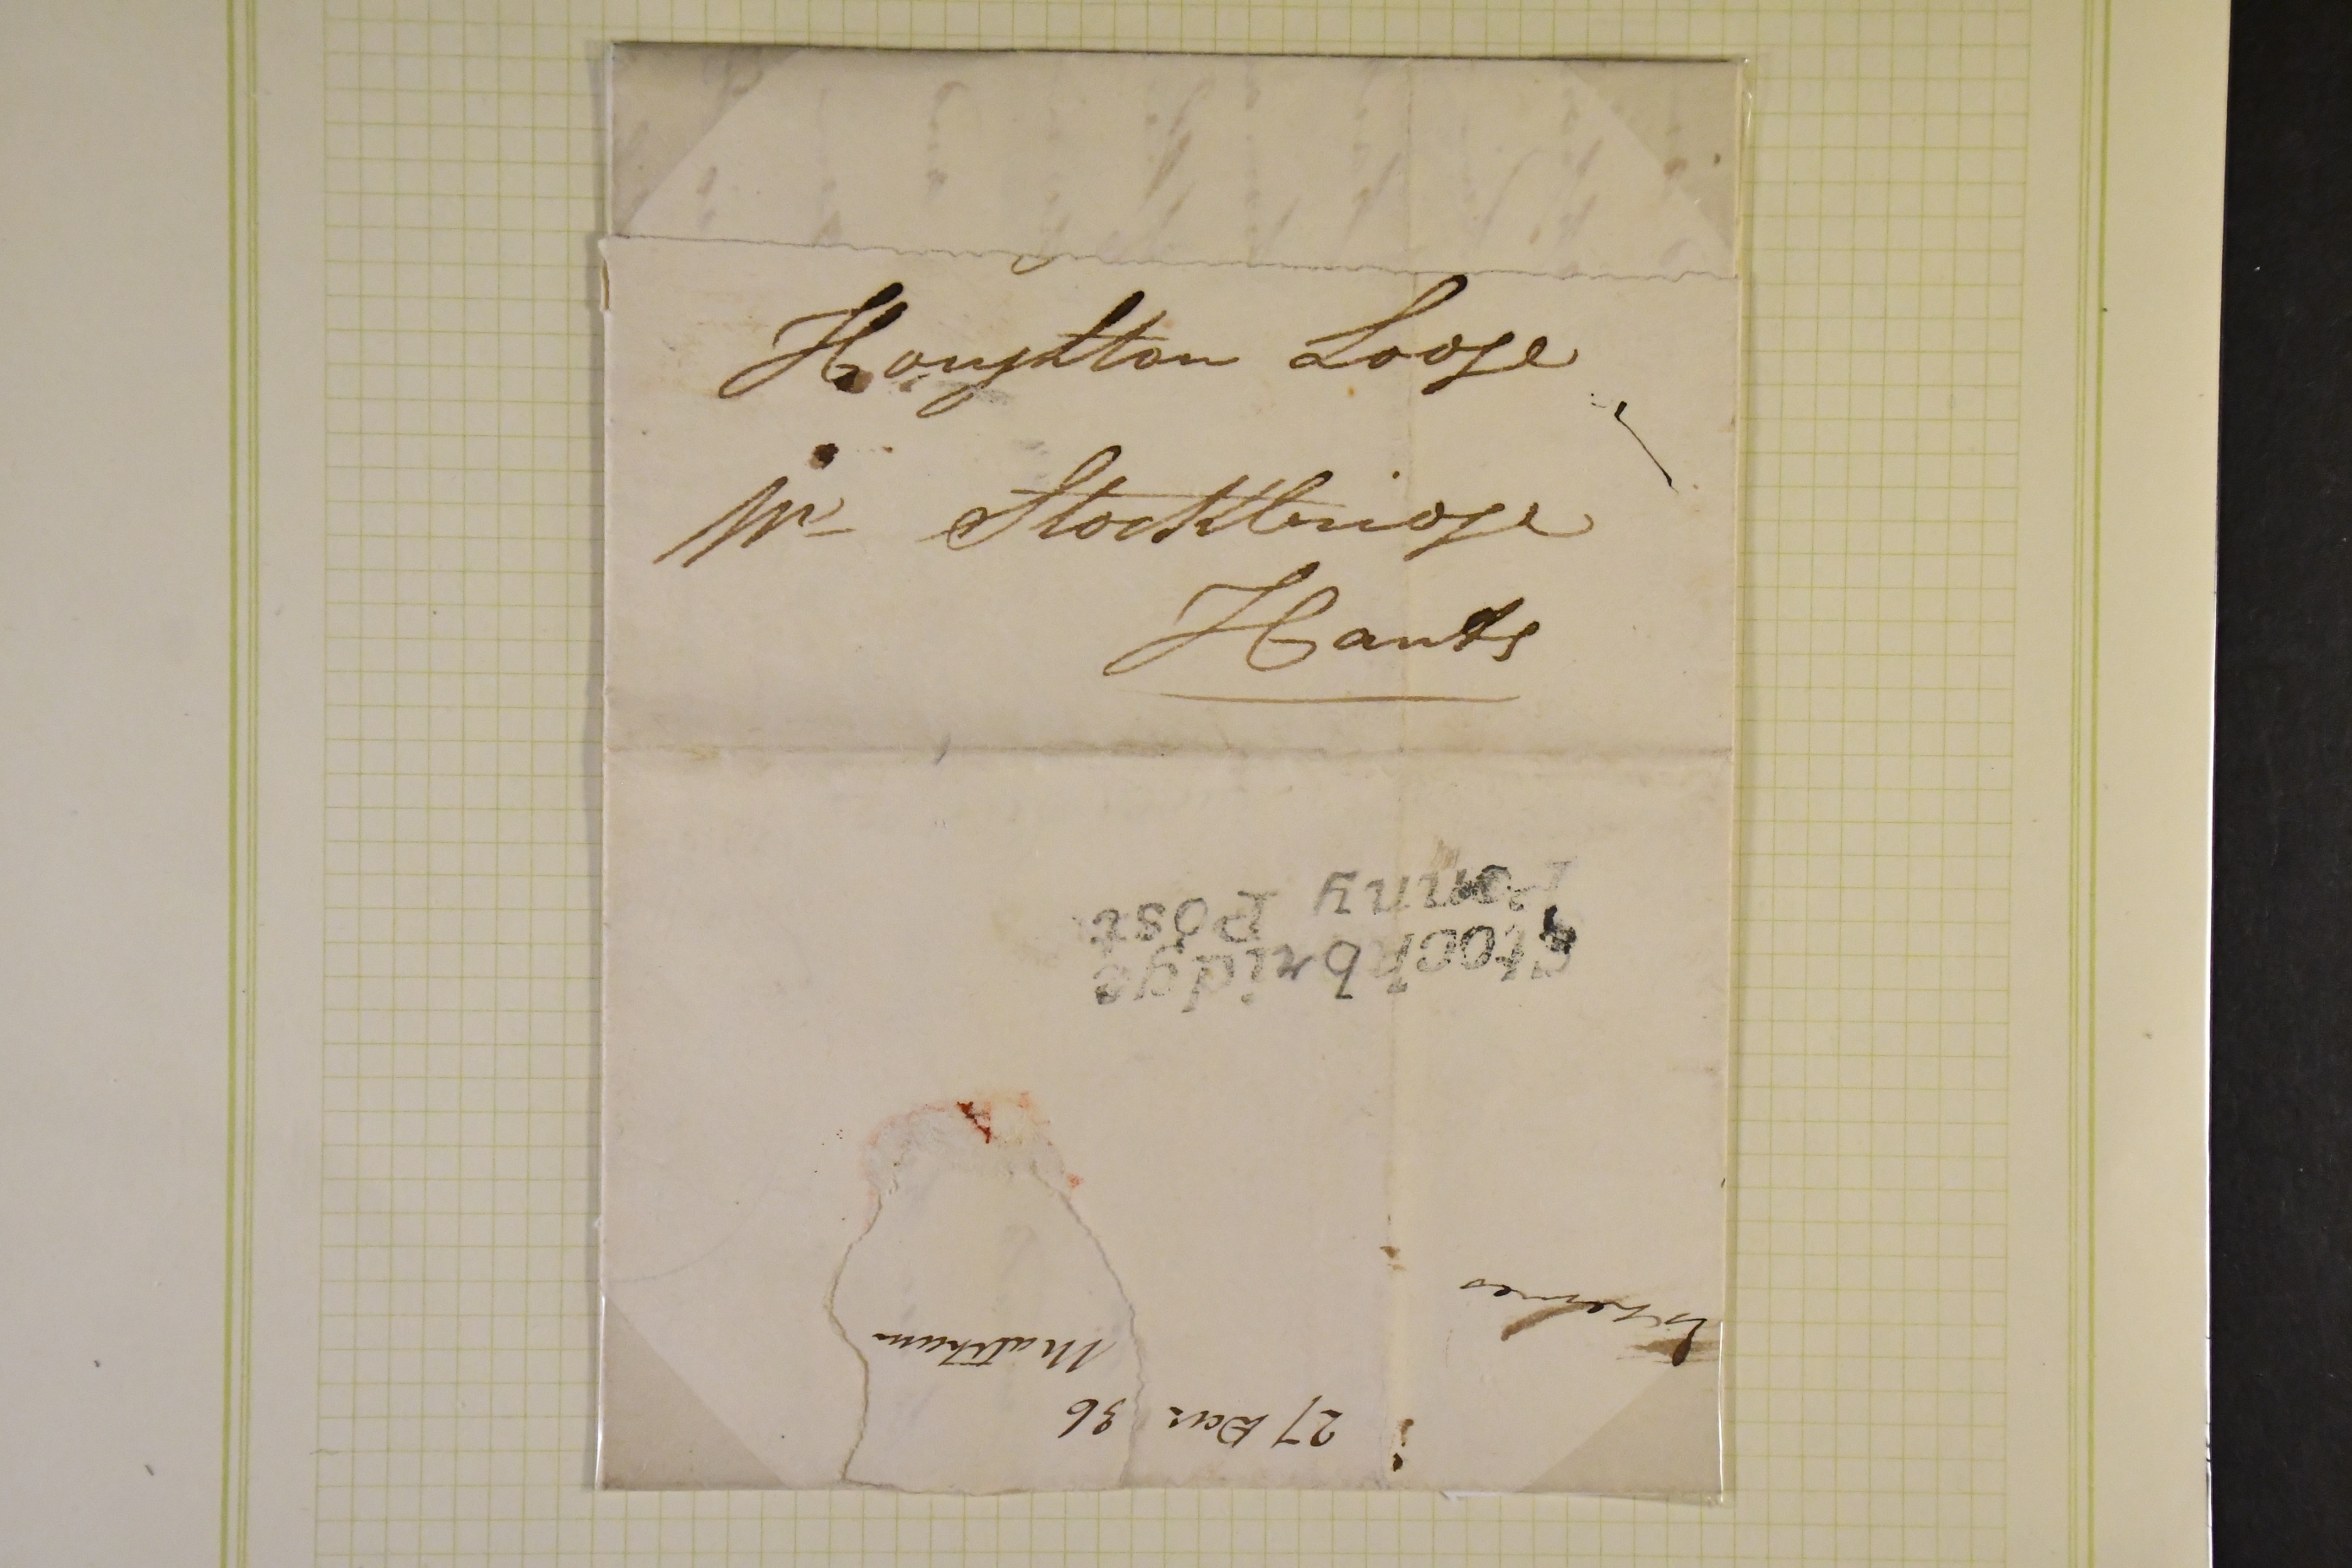 Houghton Lodge
Nr Stockbridge
Hants
Stockbridge
Penny Post
27 Dec 36